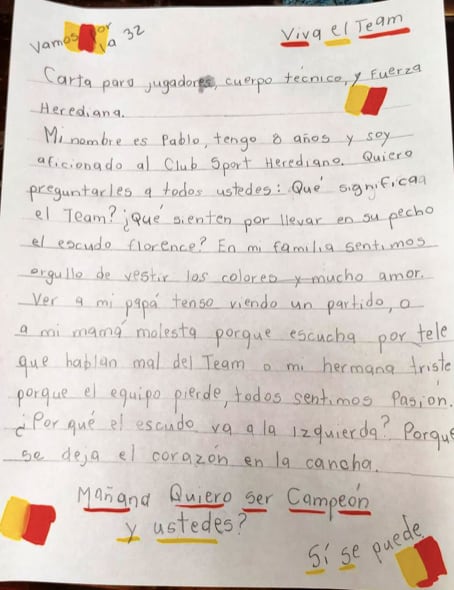 Vamos por la 32
Viva el Team
Carta para jugadores, cuerpo técnico, y Fuerza
Herediana.
Mi nombre es Pablo, tengo 8 años y soy
aficionado al Club Sport Herediano. Quiero
preguntarles a todos ustedes: Qué significaa
el Team? ¡Qué sienten por llevar en su pecho
el escudo florence? En mi familia sentimos
orgullo de vestir los colores y mucho amor.
Ver a mi papá tenso viendo un partido, o
a mi mamá molesta porque escucha por tele
que hablan mal del Team o mi hermana triste
porque el equipo pierde, todos sentimos Pasión.
¿Por qué el escudo va a la izquierda? Porque
se deja el corazón en la cancha.
Mañana Quiero ser Campeón
y ustedes?
Sí se puede